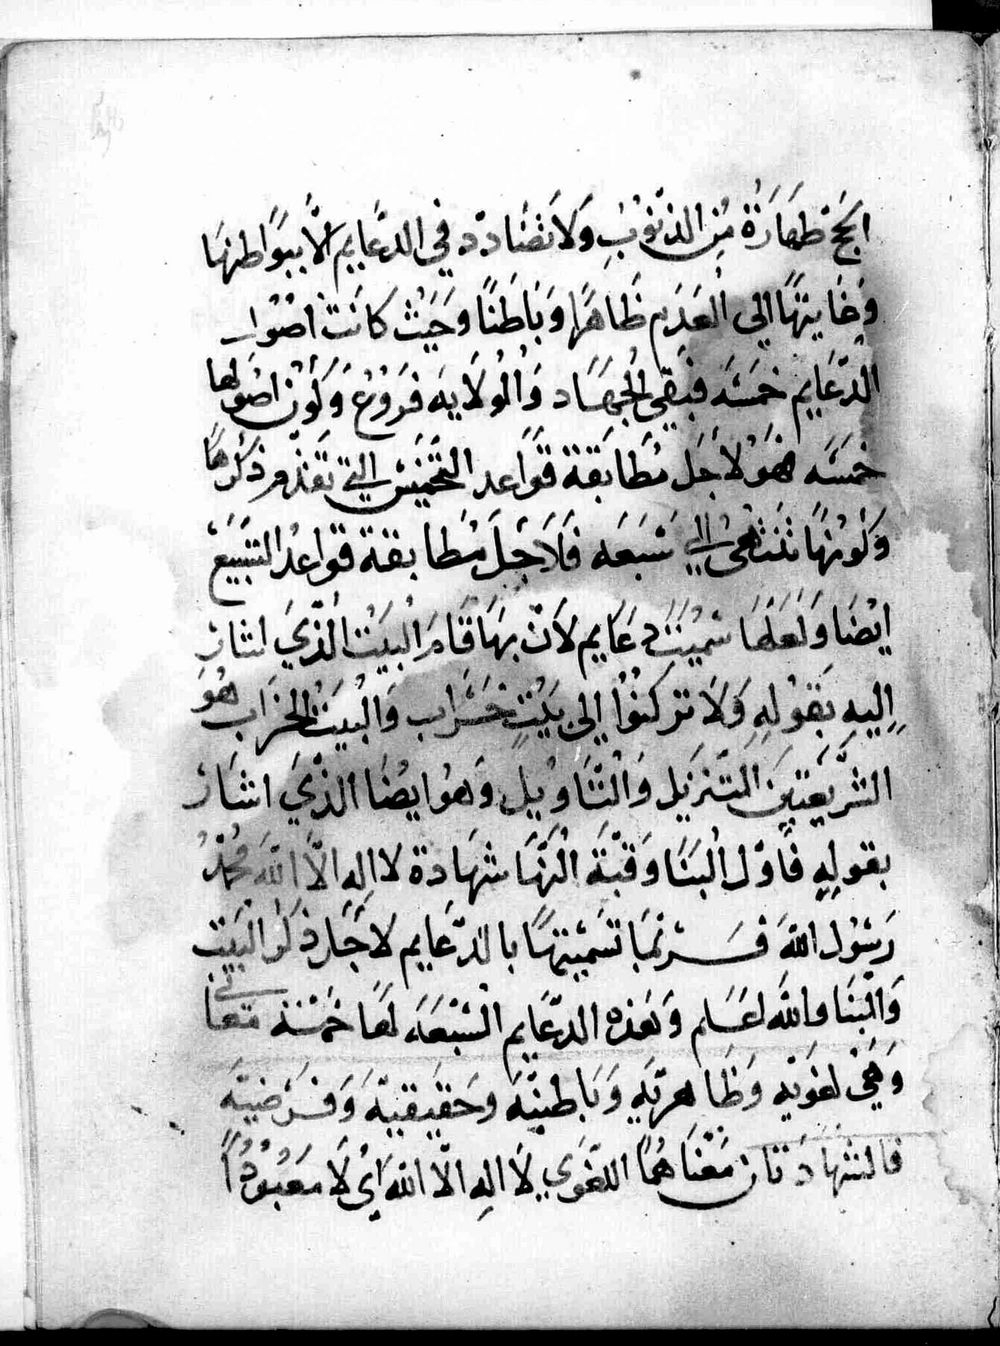 الحج طهارة من الذنوب ولا تضادد في الدعايم الا ببواطنها
وغايتها الى العدم ظاهرا وباطنا وحيث كانت اصول
الدعايم خمسه فبقي الجهاد والولايه فروع وكون اصولها
خمسه فهو لاجل مطابقة قواعد التخميس التي تقدم ذكرها
وكونها تنتهي الي سبعه فلاجل مطابقة قواعد التسبيع
ايضا ولعلها سميت دعايم لان بها قام البيت الذي اشار
اليه بقوله ولا تركنوا الى بيت خراب والبيت الخراب هو
الشريعتين التنزيل والتاويل وهو ايضا الذي اشار
بقوله فاول البنا وقبة شهادة لا اله الا الله محمد
رسول الله فربما تسميتها بالدعايم لاجل ذكر البيت
والبنا والله اعلم وهذه الدعايم السبعه لها خمسة معاني
وهي لغويه وظاهريه وباطنيه وحقيقيه وفرضيه
فالشهادتان معناهما اللغوي لا اله الا الله اي لا معبودا